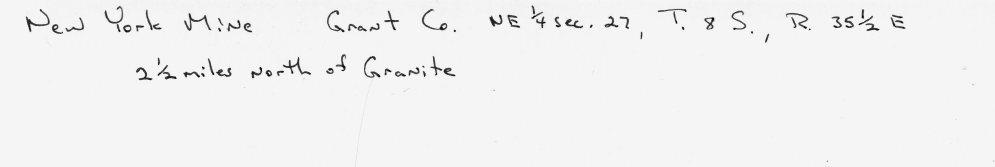 New York Mine Grant Co. NE 1/4 sec. 27, T. 8 S., R. 35 1/2 E
2 1/2 miles North of Granite